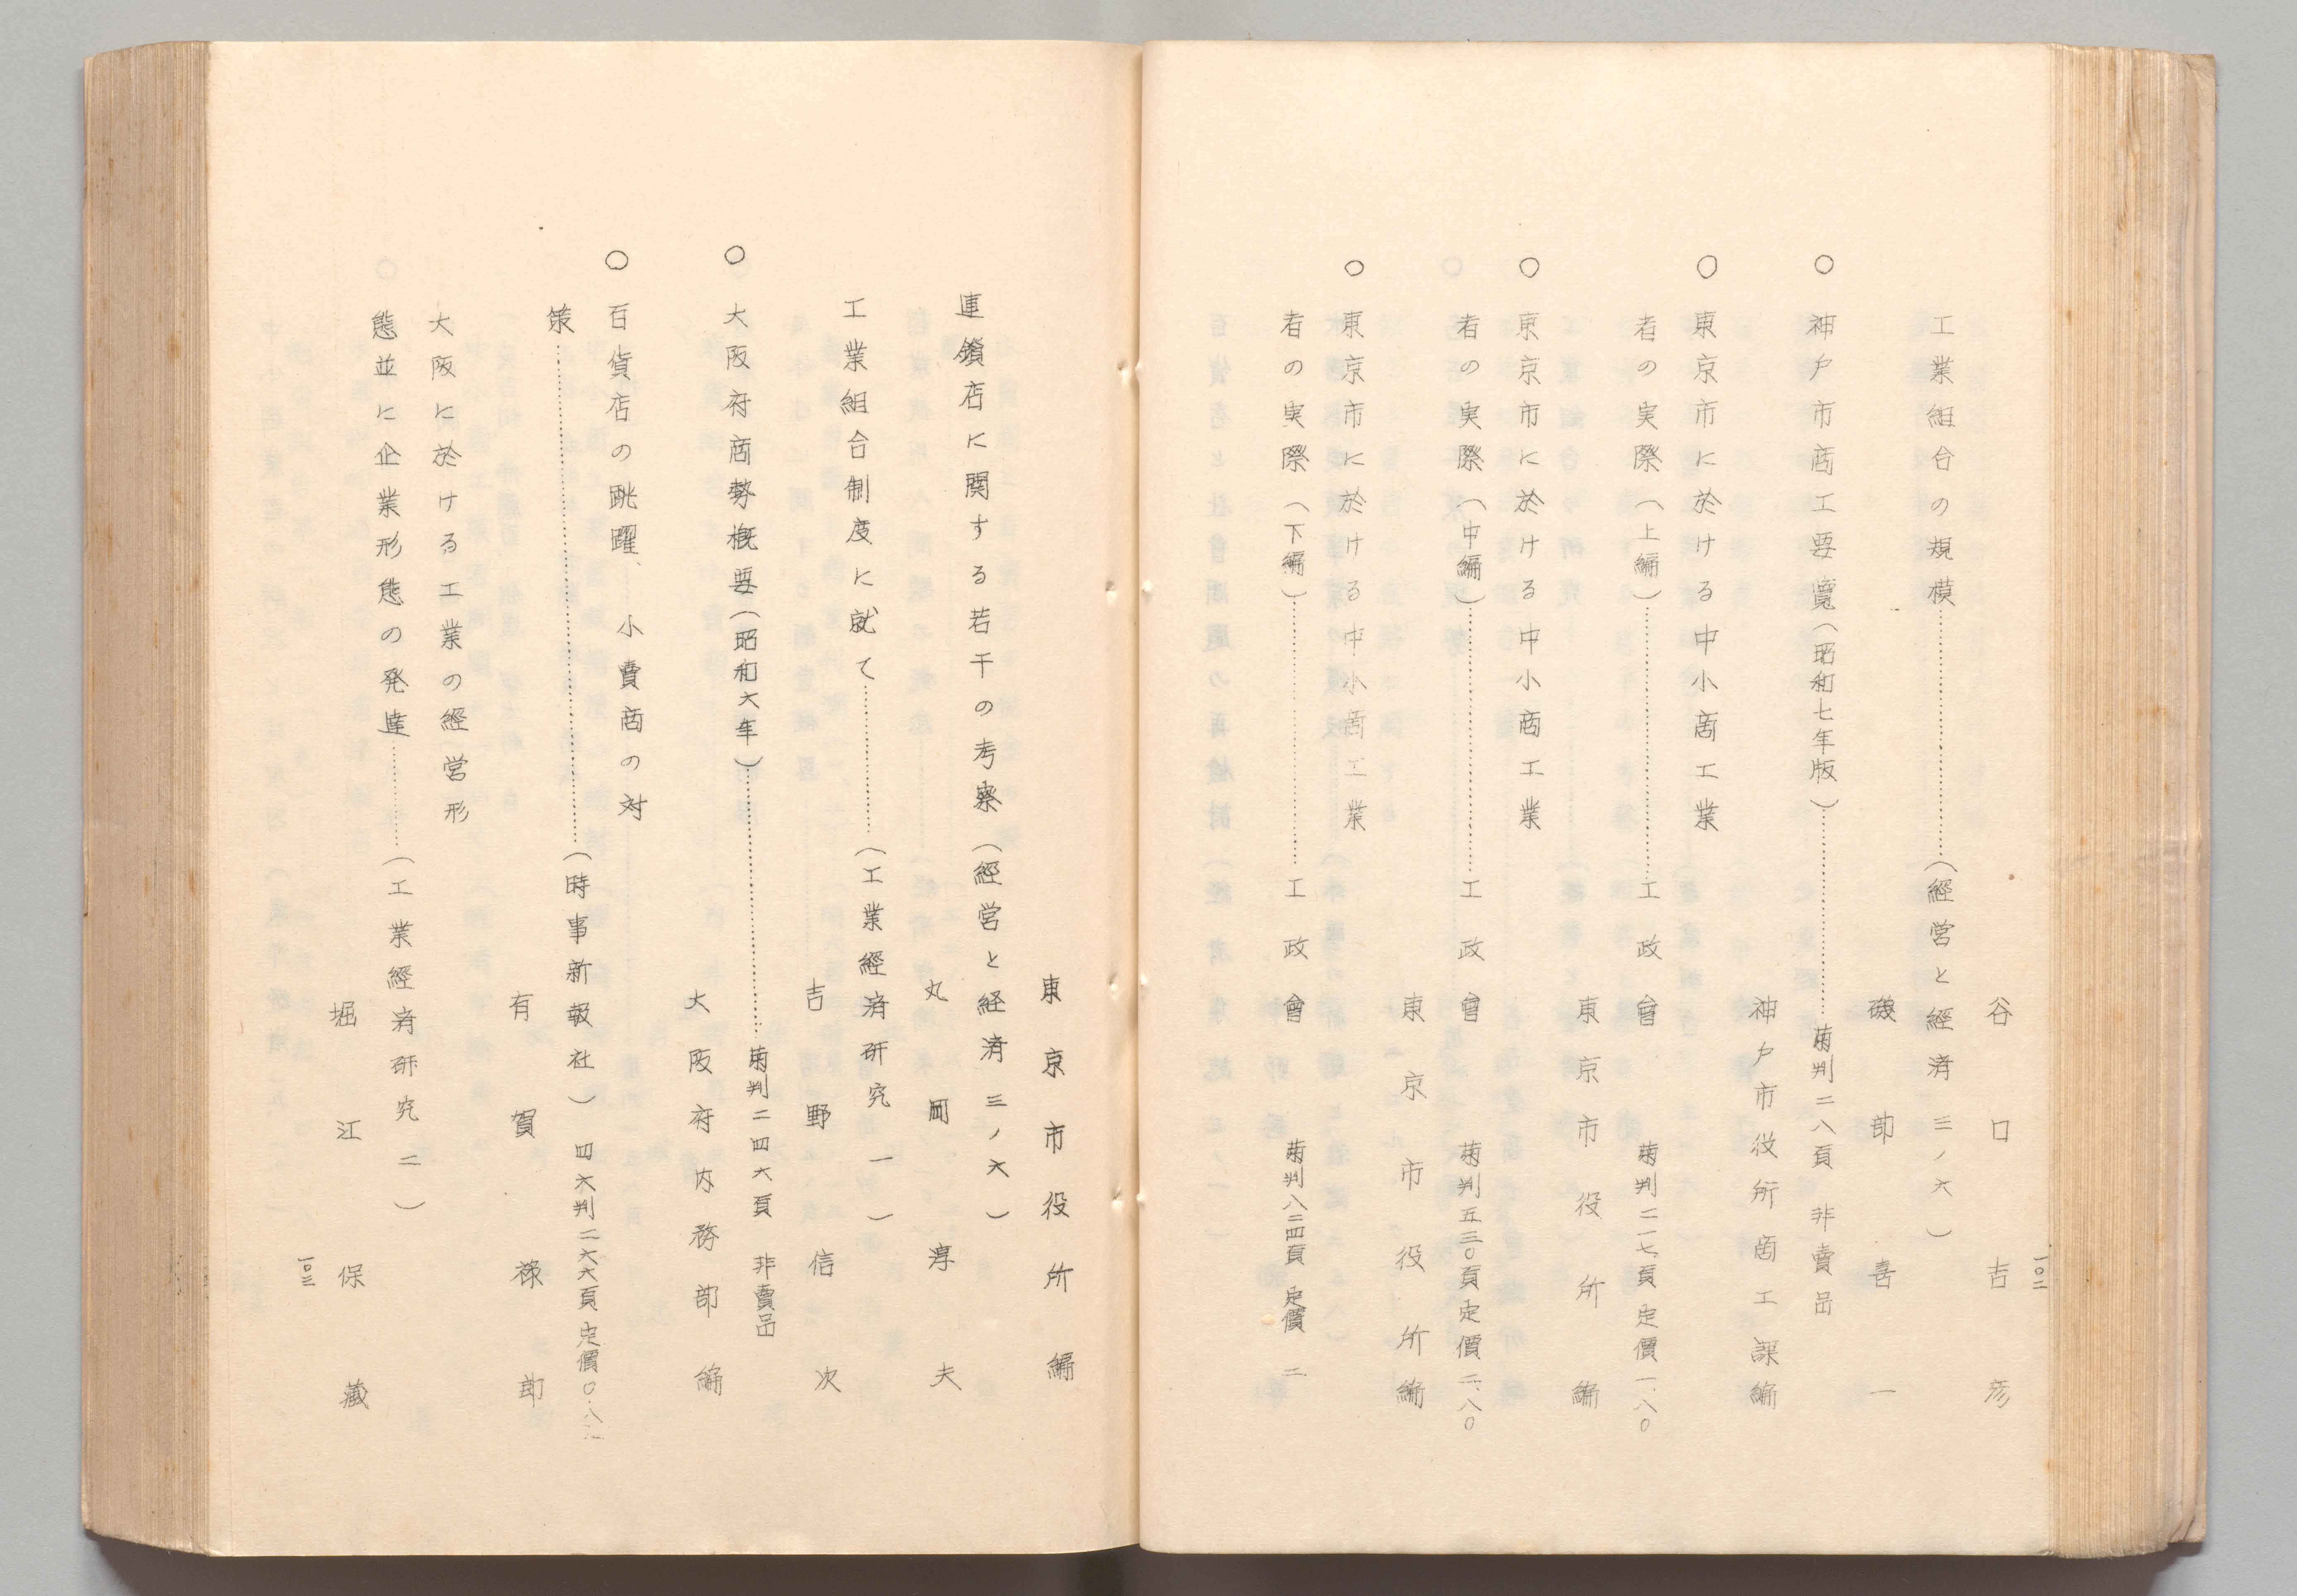 一〇二
谷口吉彦
工業組合の規模……………（経営と経済三ノ六）
磯部喜一
○神戸市商工要覧（昭和七年版）……………菊判二八頁 非賣品
神戸市役所商工課編
○東京市に於ける中小商工業
者の実際（上編）……………工政會 菊判二一七頁 定價一、八〇
東京市役所編
○東京市に於ける中小商工業
者の実際（中編）……………工政會 菊判五三〇頁 定價二、八〇
東京市役所編
○東京市に於ける中小商工業
者の実際（下編）……………工政會 菊判八二四頁 定價 二
東京市役所編
連鎖店に関する若干の考察（經営と経済三ノ六）
丸岡淳夫
工業組合制度に就て……………（工業經済研究一）
吉野信次
○大阪府商勢概要（昭和六年）……………菊判二四六頁 非賣品
大阪府内務部編
○百貨店の跳躍、小賣商の対
策……………（時事新報社）四六判二六六頁 定價〇.八
有賀禄郎
大阪に於ける工業の經営形
態並に企業形態の発達……………（工業經済研究二）
堀江保藏
一〇三